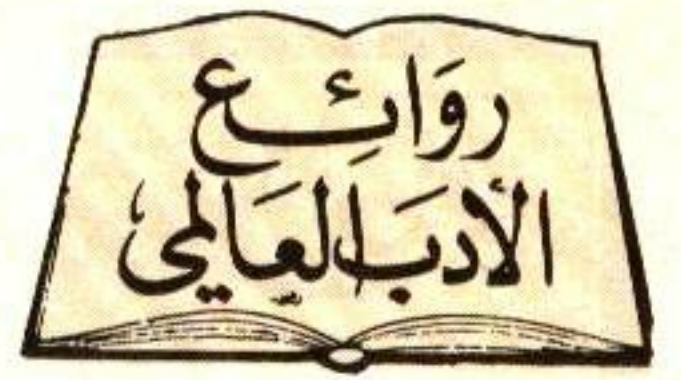 رَوَائِع
الأدَبَ العَالمى